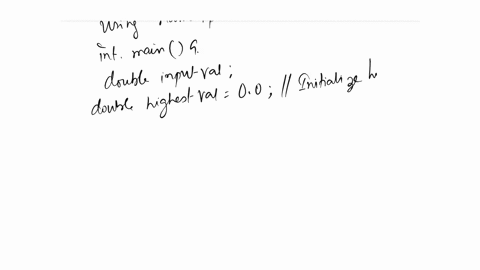 using
int. main() {
double input-val;
double highest-val = 0.0; // Initialize h